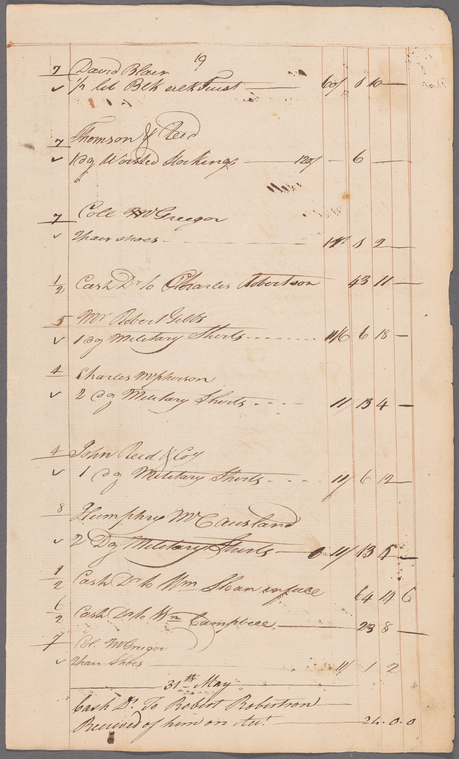 19
7 David Blair
✓ 1/2 lib Blk silk Twist 60/ 1 10 —
7 Thomson & Reid
✓ 1 dg Worsted Stockings 120/ — 6 —
7 Coll McGregor
✓ 2 pair shoes 11/ 1 2 —
1/2 Cash Dr to Charles Robertson 43 11 —
5 Mr Robert Gibb
✓ 1 dg Military Shirts 11/6 6 18 —
4 Charles McPherson
✓ 2 dg Military Shirts 11/ 13 4 —
4 John Reid & Coy
✓ 1 dg Military Shirts 11/ 6 12 —
8 Humphry McCausland
✓ 2 Dg Military Shirts 11/ 13 5 —
1/2 Cash Dr to Wm Sloan 64 14 6
6/2 Cash Dr to Wm Campbell 23 8 —
7 Col. McGregor
✓ 2 pair Shoes 11/ 1 2
31st May
Cash Dr To Robert Robertson
Received of him on Acct 24.0.0